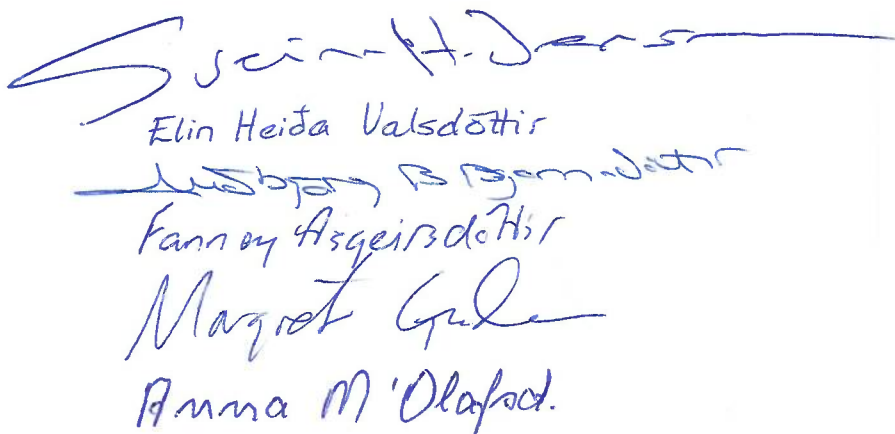 Sveinn H. Jens
Elin Heiða Valsdóttir
Guðbjörg B Bjarnadóttir
Fanney Ásgeirsdóttir
Margrét
Anna M Ólafsd.